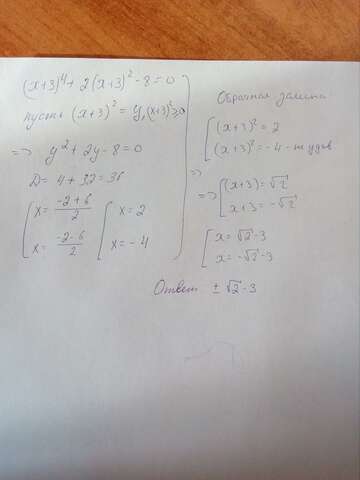 (x+3)⁴ + 2(x+3)² - 8 = 0
пусть (x+3)² = y, (x+3)² ≥ 0
=> y² + 2y - 8 = 0
D = 4 + 32 = 36
[ x = (-2+6)/2 [ x = 2
x = (-2-6)/2 x = -4
Обратная замена
[ (x+3)² = 2
(x+3)² = -4 - не удов.
=>
=> [ (x+3) = √2
x+3 = -√2
[ x = √2 - 3
x = -√2 - 3
Ответ ± √2 - 3